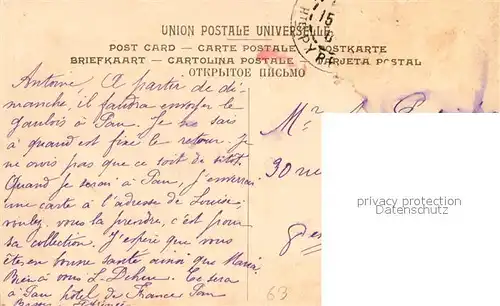 UNION POSTALE UNIVERSELLE
POST CARD — CARTE POSTALE — POSTKARTE
BRIEFKAART — CARTOLINA POSTALE — TARJETA POSTAL
ОТКРЫТОЕ ПИСЬМО
Antoine, A partir de di-
manche, il faudra envoyer le
gaulois à Pau. Je ne sais
à quand est fixé le retour. Je
ne crois pas que ce soit de sitôt.
Quand je serai à Pau, j'enverrai
une carte à l'adresse de Louise
voulez-vous la prendre, c'est pour
sa collection. J'espère que vous
êtes en bonne santé ainsi que Maria
Bien à vous L. Ce sera
à Pau hôtel de France Pau
Mr
30 rue
63
privacy protection
Datenschutz